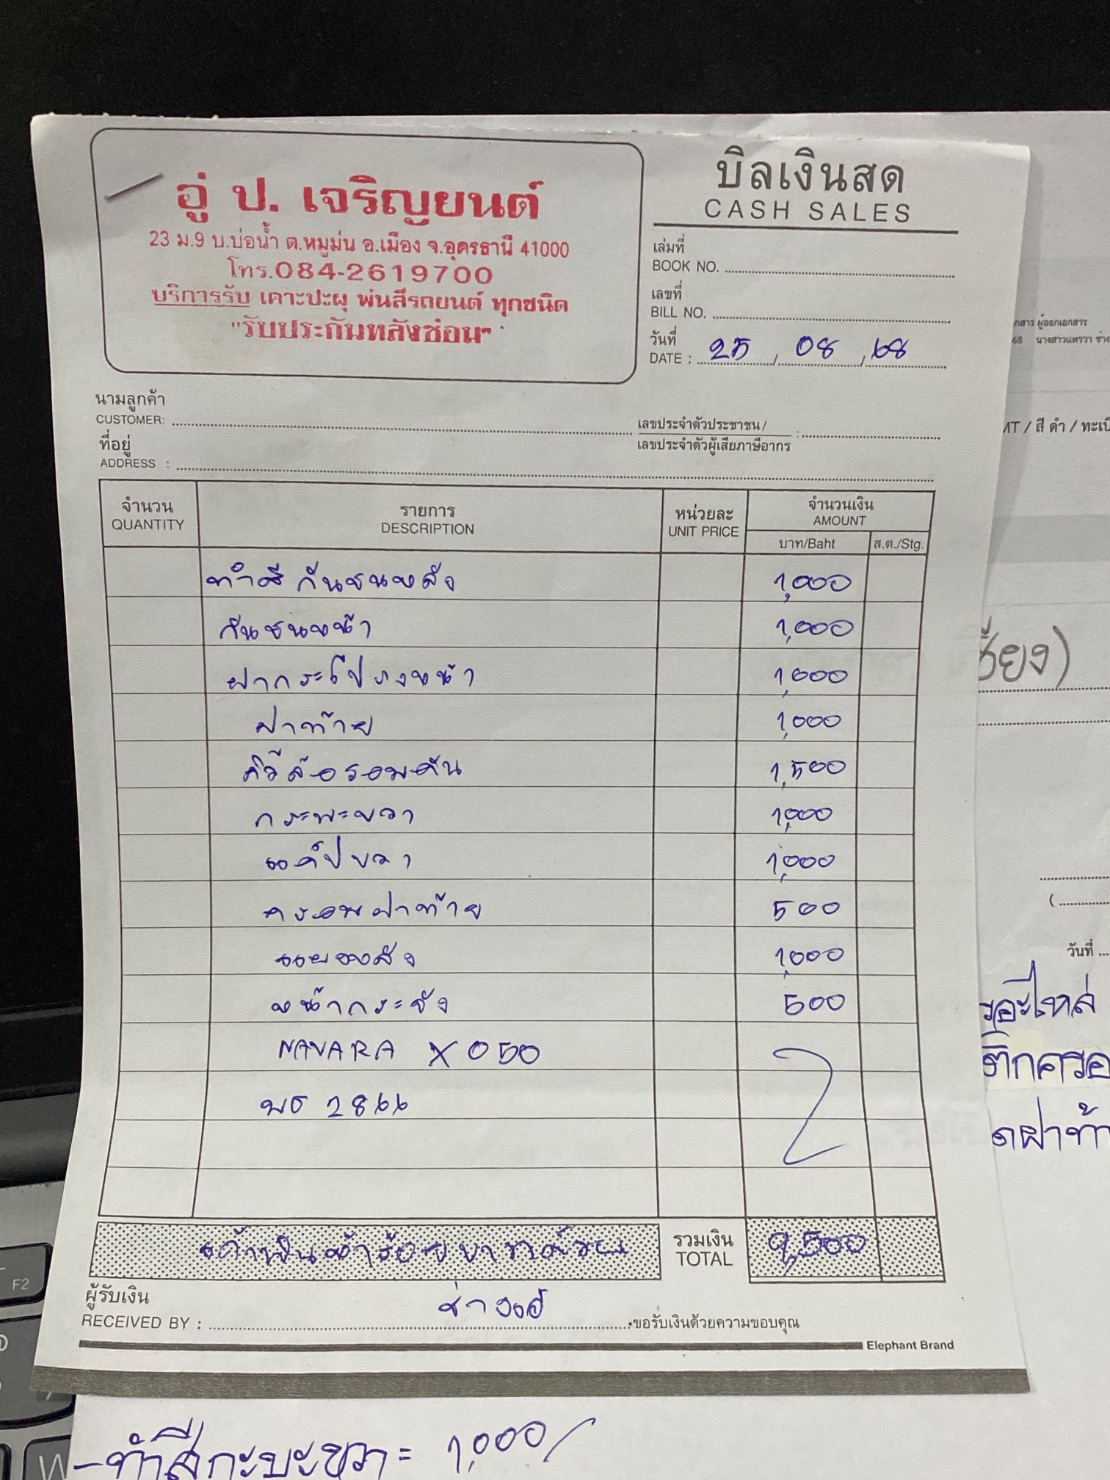 อู่ ป. เจริญยนต์
23 ม.9 บ.บ่อน้ำ ต.หมูม่น อ.เมือง จ.อุดรธานี 41000
โทร.084-2619700
บริการรับ เคาะปะผุ พ่นสีรถยนต์ ทุกชนิด
"รับประกันหลังซ่อม"
บิลเงินสด
CASH SALES
เล่มที่
BOOK NO.
เลขที่
BILL NO.
วันที่
DATE : 25 / 08 / 68
นามลูกค้า
CUSTOMER:
เลขประจำตัวประชาชน/
เลขประจำตัวผู้เสียภาษีอากร :
ที่อยู่
ADDRESS :
จำนวน รายการ หน่วยละ จำนวนเงิน
QUANTITY DESCRIPTION UNIT PRICE AMOUNT
บาท/Baht ส.ต./Stg.
ทำสี กันชนหลัง 1,000
กันชนหน้า 1,000
ฝากระโปรงหน้า 1,000
ฝาท้าย 1,000
คิ้วล้อรอบคัน 1,500
กระบะขวา 1,000
แค๊ปขวา 1,000
ครอบฝาท้าย 500
1,000
หน้ากระจัง 500
NAVARA X050
2866
รวมเงิน 9,500
TOTAL
ผู้รับเงิน
RECEIVED BY : ขอรับเงินด้วยความขอบคุณ
Elephant Brand
-ทำสีกะบะขวา = 1,000/
กสาร ผู้ออกเอกสาร
68 นางสาวแพรวา ช่าง
MT / สี ดำ / ทะเบี
ซียง)
วันที่
อะไหล่
ติกครอ
ฝาท้า
F2
W